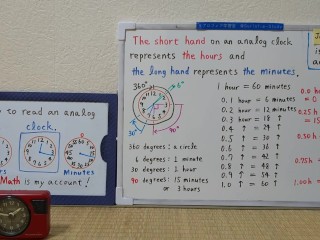 The short hand on an analog clock
represents the hours and
the long hand represents the minutes.
360°
6°
30°
90°
1 hour = 60 minutes
0.1 hour = 6 minutes
0.2 hour = 12 minutes
0.3 hour = 18 ↑
0.4 ↑ = 24 ↑
0.5 ↑ = 30 ↑
0.6 ↑ = 36 ↑
0.7 ↑ = 42 ↑
0.8 ↑ = 48 ↑
0.9 ↑ = 54 ↑
1.0 ↑ = 60 ↑
360 degrees: a circle
6 degrees: 1 minute
30 degrees: 1 hour
90 degrees: 15 minutes
or 3 hours
to read an analog
clock.
Minutes
Math is my account!
0.25 h
0.50 h
0.75 h
1.00 h